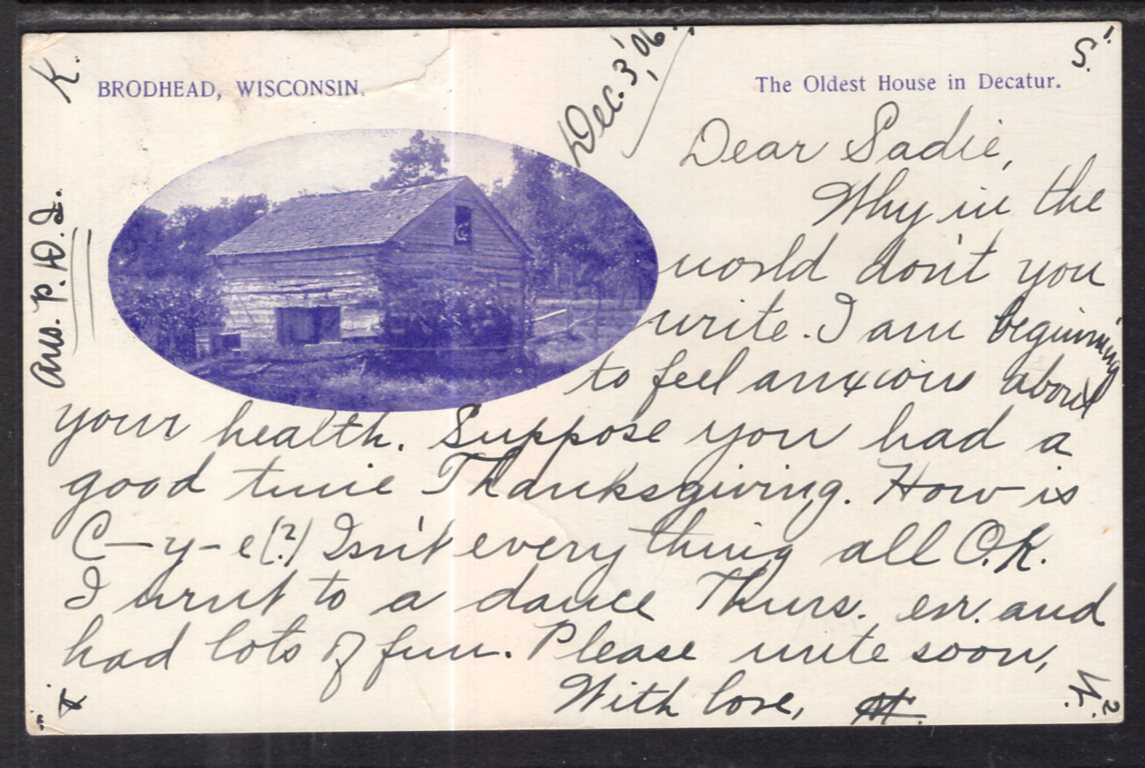 K.
BRODHEAD, WISCONSIN.
Dec. 3, '06.
The Oldest House in Decatur.
S.'
Dear Sadie,
Why in the
world don't you
write. I am beginning
to feel anxious about
your health. Suppose you had a
good time Thanksgiving. How is
C—y–e(?) Isn't everything all O.K.
I went to a dance Thurs. eve. and
had lots of fun. Please write soon,
With love, M.
Ans. P. D. Q.
W. 2.